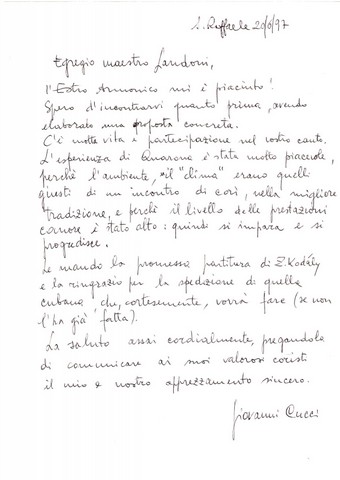 S. Raffaele 20/6/97
Egregio maestro Landoni,
l'Estro Armonico mi è piaciuto!
Spero d'incontrarvi quanto prima, avendo
elaborato una proposta concreta.
C'è molta vita e partecipazione nel vostro canto.
L'esperienza di Quarona è stata molto piacevole,
perchè l'ambiente, "il "clima" erano quelli
giusti di un incontro di cori, nella migliore
tradizione, e perchè il livello delle prestazioni
canore è stato alto: quindi si impara e si
progredisce.
Le mando la promessa partitura di Z. Kodály
e la ringrazio per la spedizione di quella
cubana che, cortesemente, vorrà fare (se non
l'ha già fatta).
La saluto assai cordialmente, pregandola
di comunicare ai suoi valorosi coristi
il mio e nostro apprezzamento sincero.
Giovanni Cucci